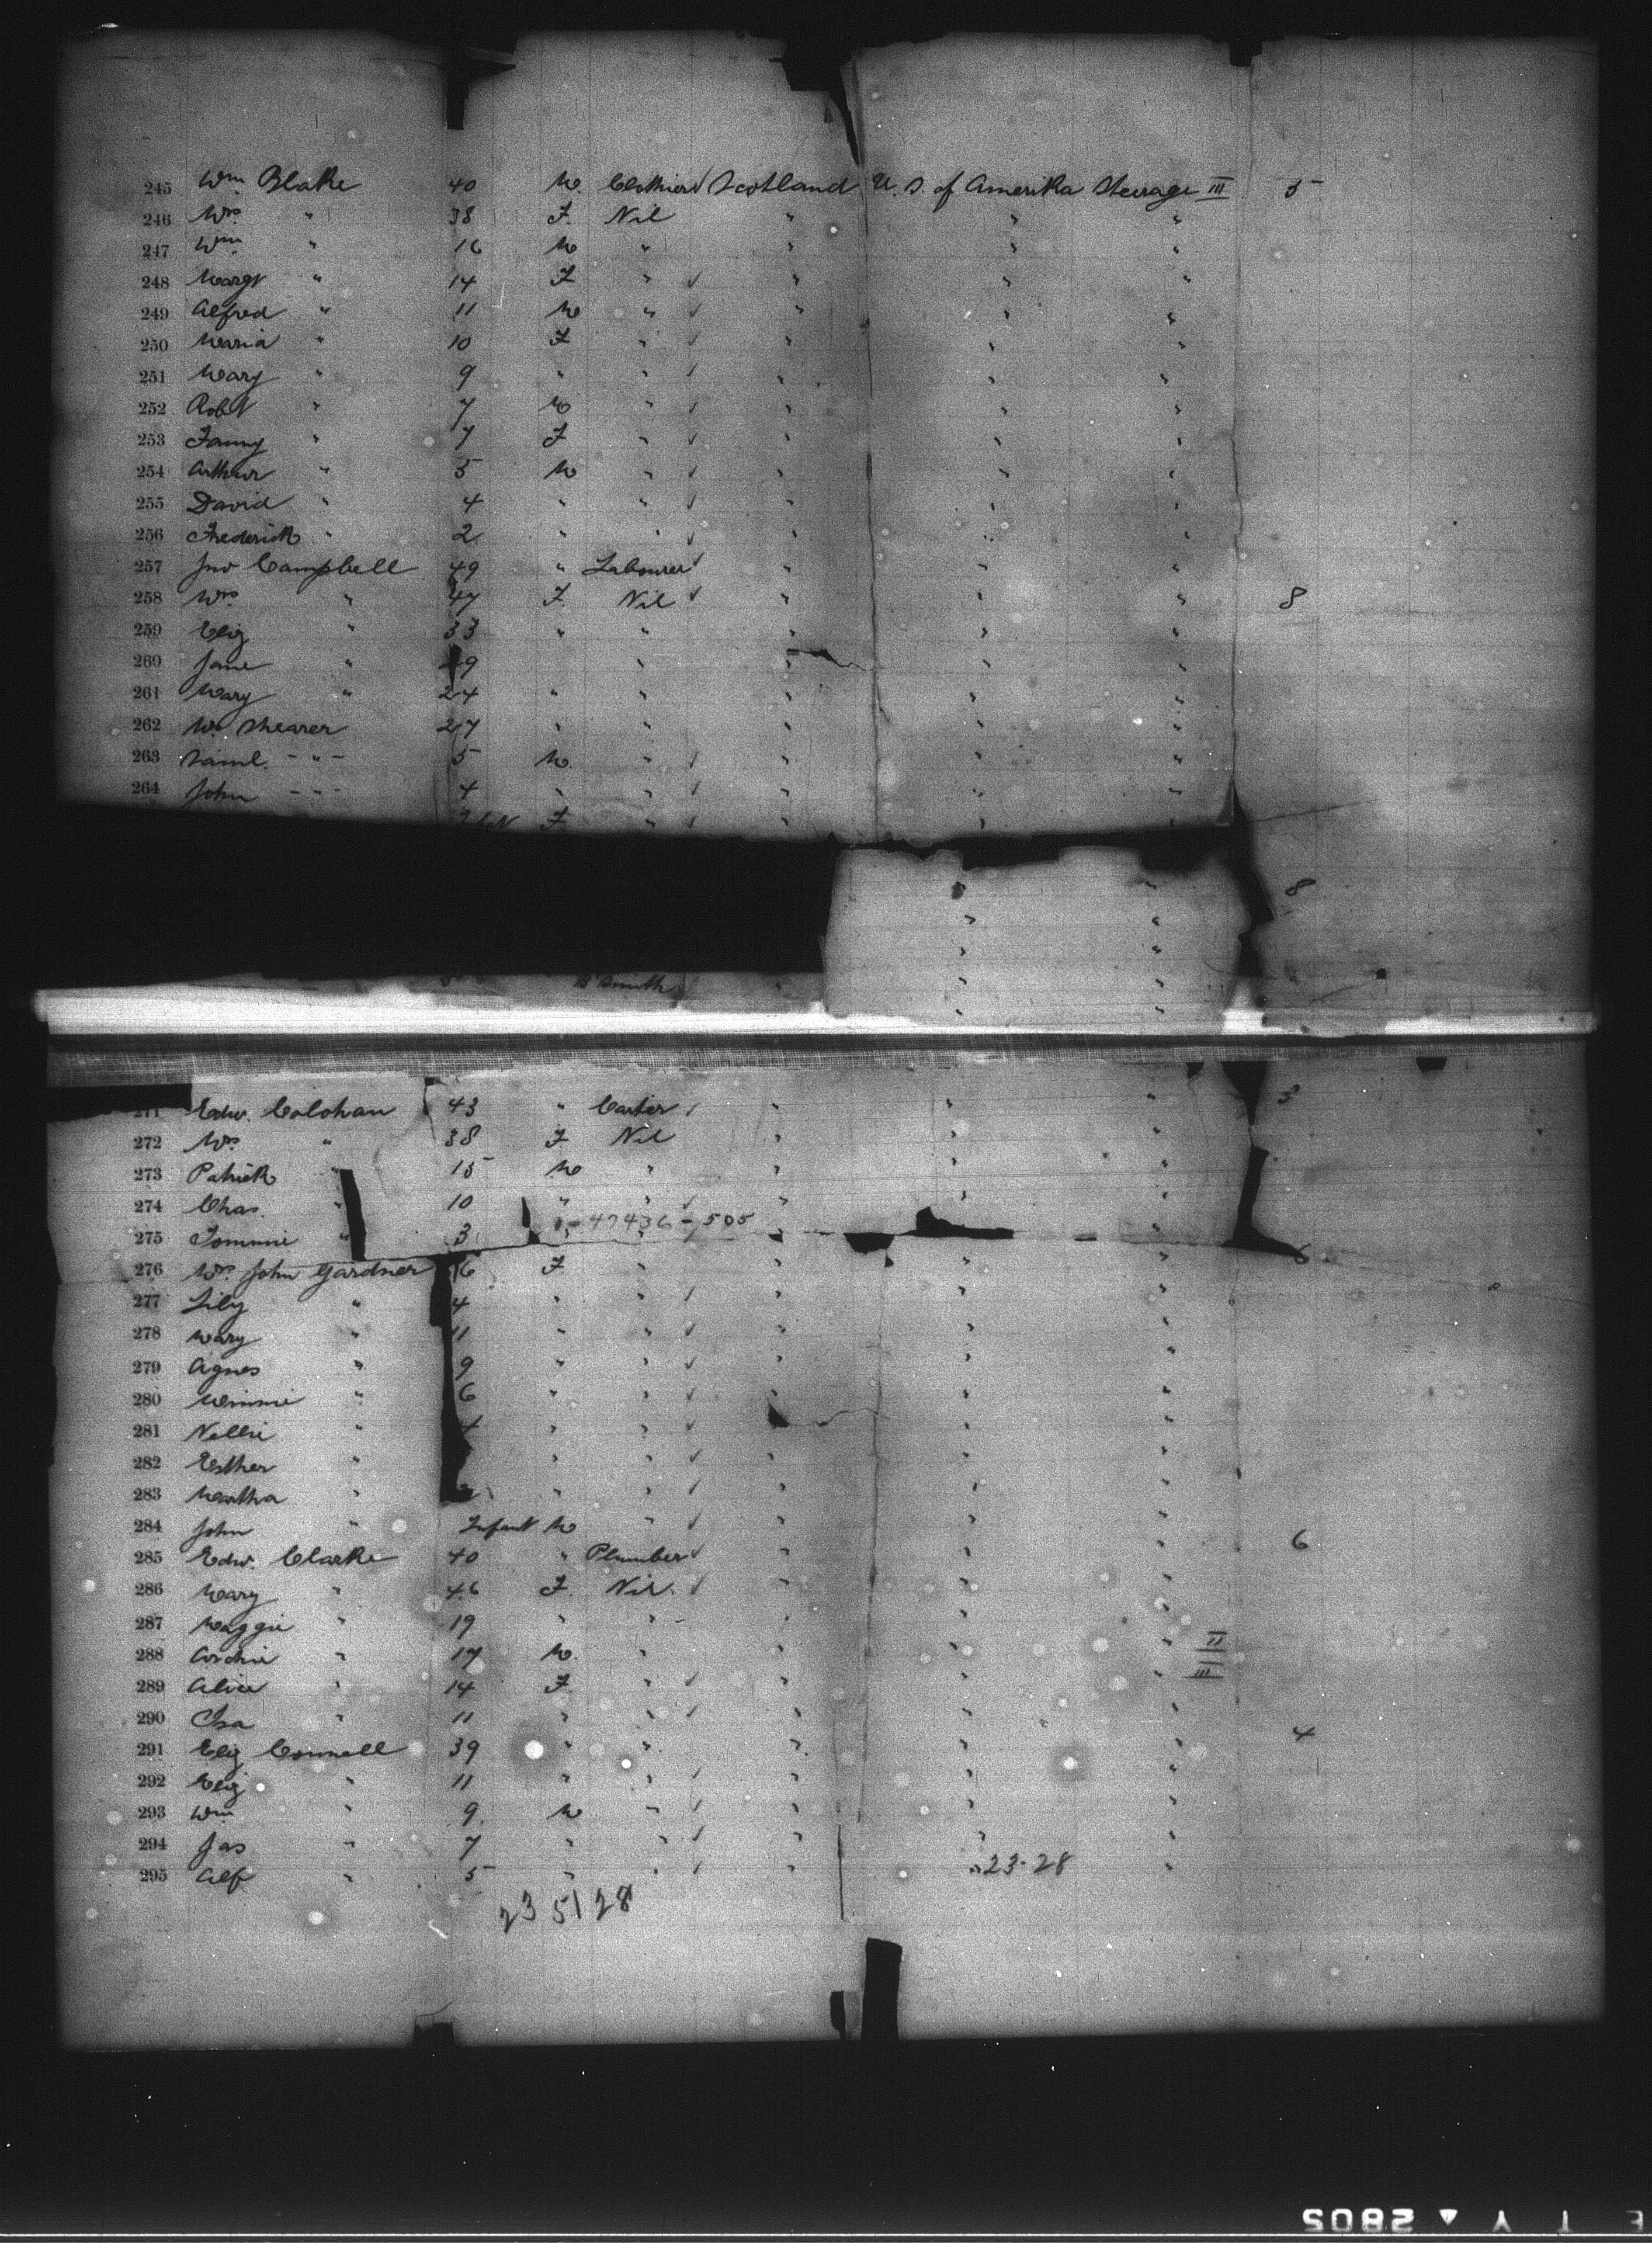 245 Wm Blake 40 M. Clothier Scotland U. S. of Amerika Steerage III 5
246 Mrs " 38 F. Nil " " "
247 Wm " 16 M " " " "
248 Margt " 14 F " " " "
249 Alfred " 11 M " " " "
250 Maria " 10 F " " " "
251 Mary " 9 " " " " "
252 Robt " 7 M " " " "
253 Fanny " 7 F " " " "
254 Arthur " 5 M " " " "
255 David " 4 " " " " "
256 Frederick " 2 " " " " "
257 Jno Campbell 49 " Labourer " "
258 Mrs " 47 F. Nil " " " 8
259 Eliz " 33 " " " " "
260 Jane " 9 " " " "
261 Mary " 24 " " " " "
262 Mrs Shearer 27 " " " " "
263 Saml. - " - 5 M. " " " "
264 John - " - 4 " " " " "
F " " " "
" " 8
" "
" "
" Smith " " "
" "
271 Edw. Colohan 43 " Carter " " " 3
272 Mrs " 38 F Nil " " "
273 Patrick " 15 M " " " "
274 Chas. " 10 " " " " "
47436-505
275 Tommie " 3 " " " "
276 Mrs John Gardner 6 F. " " " " 6
277 Lily " 4 " " " " "
278 Mary " 11 " " " " "
279 Agnes " 9 " " " " "
280 Minnie " 6 " " " " "
281 Nellie " " " " " "
282 Esther " " " " " "
283 Martha " " " " " "
284 John " Infant M " " " " 6
285 Edw. Clarke 40 " Plumber " " "
286 Mary " 46 F. Nil. " " "
287 Maggie " 19 " " " " "
288 Archie " 17 M. " " " II
289 Alice " 14 F. " " " III
290 Isa " 11 " " " " "
291 Eliz Connell 39 " " " " " 4
292 Eliz " 11 " " " " "
293 Wm " 9 M " " " "
294 Jas " 7 " " " " "
295 Alf " 5 " " " " 23-28 "
23 5128
E T Y 2805